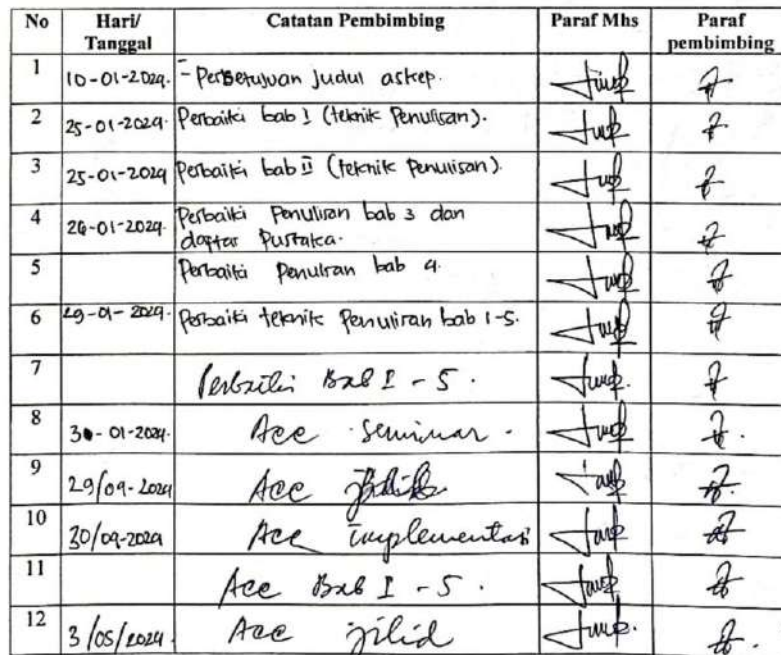 No Hari/ Tanggal Catatan Pembimbing Paraf Mhs Paraf pembimbing
1 10-01-2024. - Persetujuan Judul askep.
2 25-01-2024. Perbaiki bab I (teknik Penulisan).
3 25-01-2024 Perbaiki bab II (teknik Penulisan).
4 26-01-2024. Perbaiki Penulisan bab 3 dan
daftar Pustaka.
5 Perbaiki Penulisan bab 4.
6 29-01-2024. Perbaiki teknik Penulisan bab 1-5.
7 Perbaiki Bab I - 5.
8 30-01-2024. Acc seminar.
9 29/04-2024 Acc
10 30/04-2024 Acc implementasi
11 Acc Bab I - 5.
12 3/05/2024. Acc jilid